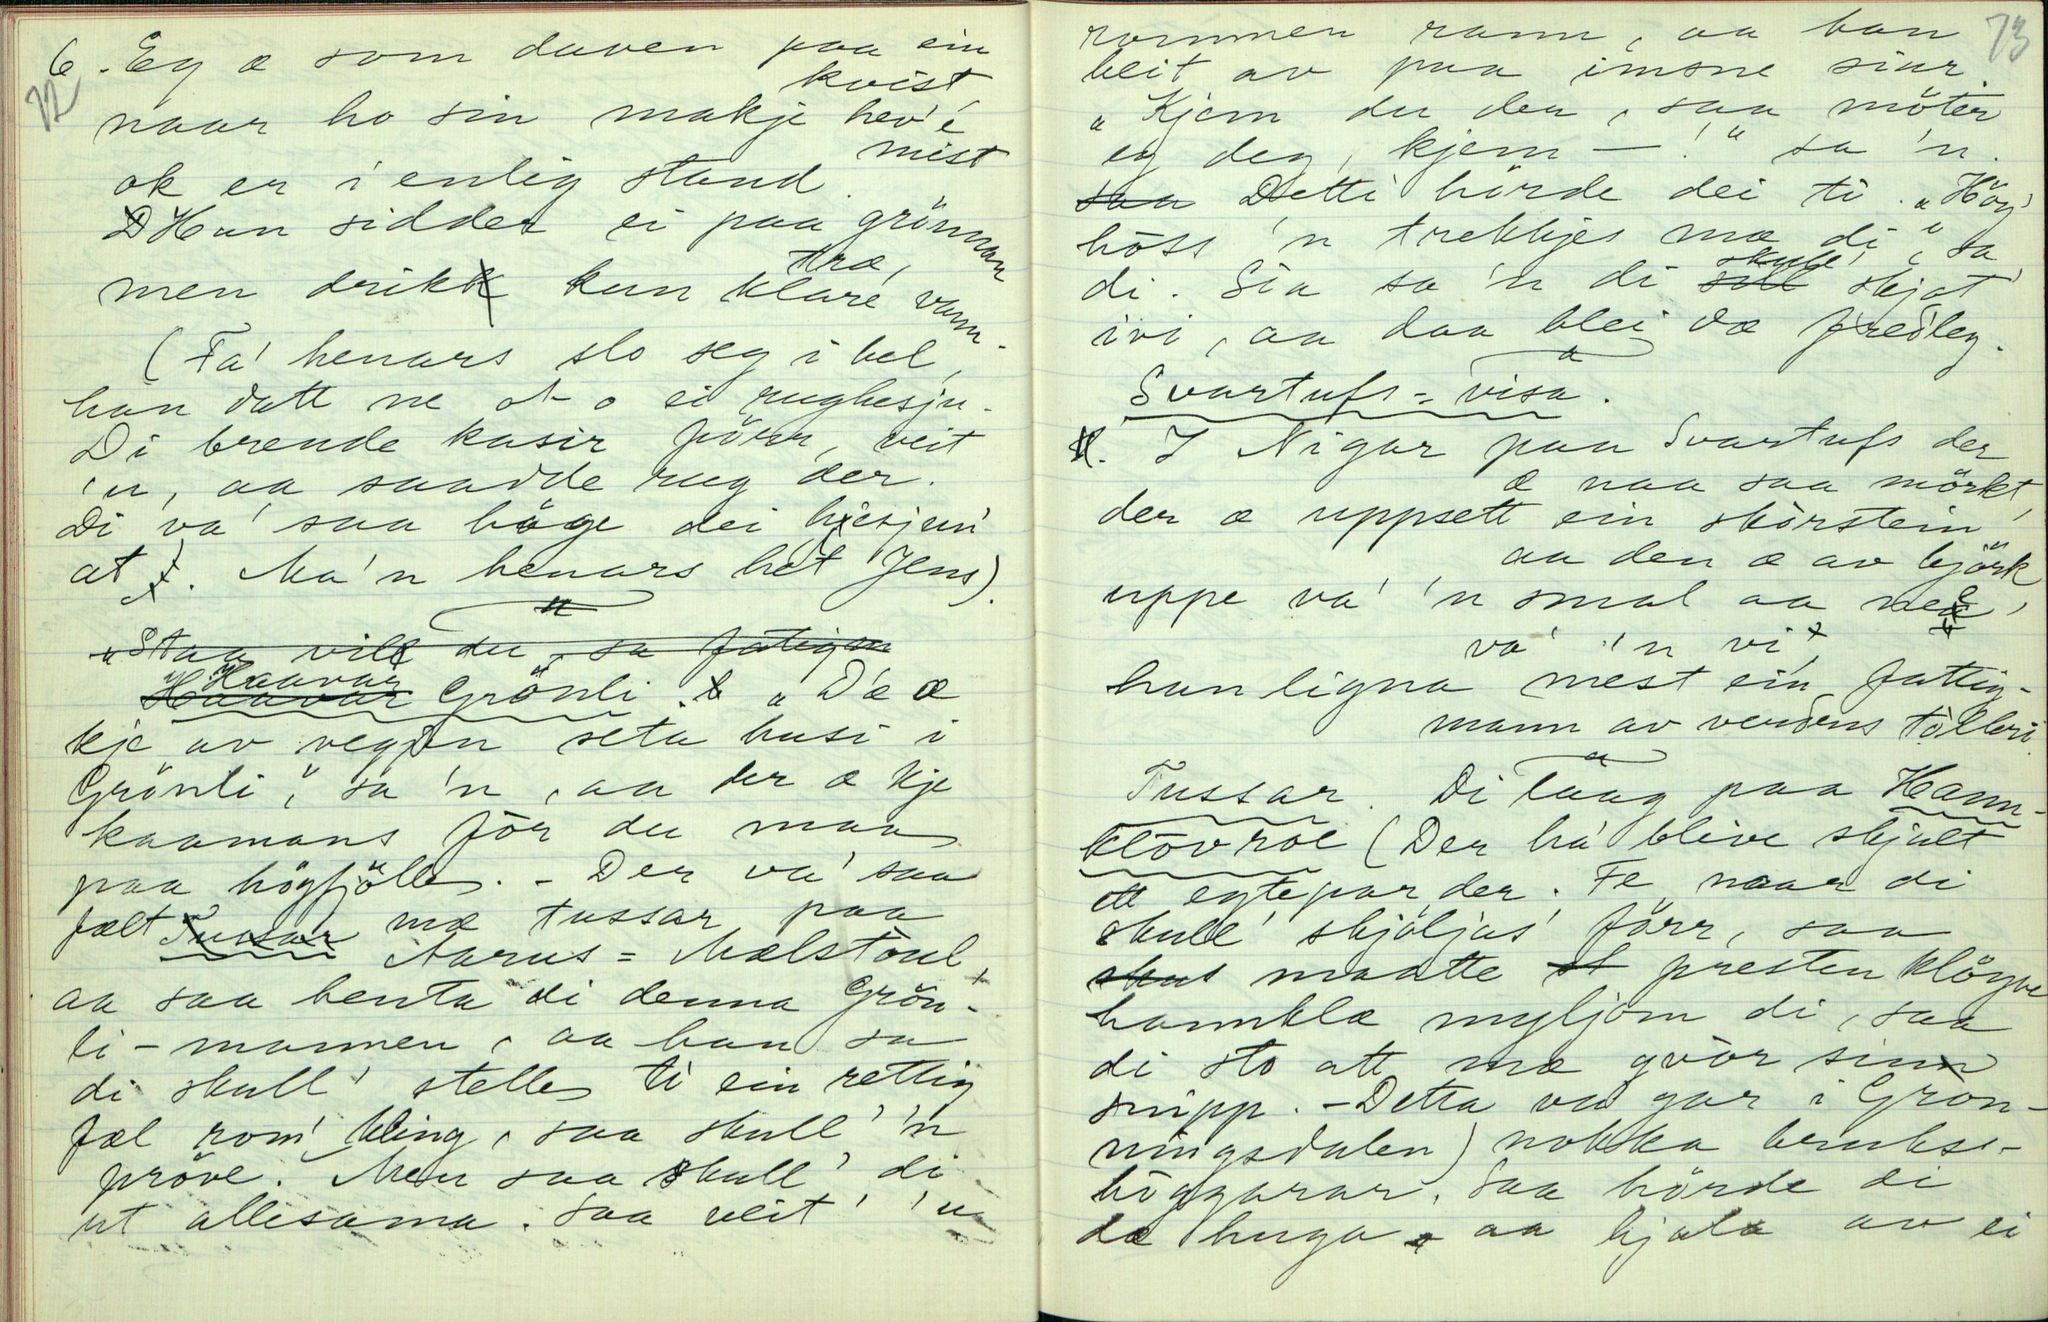 72
6. Eg æ som duven paa ein
kvist
naar ho sin makje hev'e
mist
ok er i enlig stand.
Hun sidder ei paa grönnan
træ,
men drikk kun klare vann.
(Fa' henars slo seg i hel,
han datt ne at o ei rughesju.
Di brende kasir förr, veit
'n, aa saadde rug der.
Di va' saa höge dei hesjun'
at. Ma'n henars het Jens).
"Staa vill du, sa fatigm
Haavar Grönli. "D'æ æ
kje av vegjen seta husi i
Grönli", sa 'n, aa der æ kje
kaamans för du maa
paa högfjölle. - Der va' saa
fælt Tussar mæ tussar paa
Aarus-Mælstöul
aa saa henta di denna Grön-
li-mannen, aa han sa
di skull' stelle ti ein rettig
fæl rom'kling, saa skull' 'n
pröve. Men saa skull' di
ut allesama. Saa veit' 'n
73
rommen rann, aa han
beit av paa imsne siur.
"Kjem du der, saa möter
eg deg, kjem — !" sa 'n.
saa Detti hörde dei ti. "Höy'
höss 'n trekkjes mæ di", sa
di. Sia sa 'n di skulle skjot'
ivi, aa daa blei dæ fredleg.
Svartufs-visa.
1. I Nigar paa Svartufs der
æ naa saa mörkt,
der æ uppsett ein skörstein
aa den æ av björk
uppe va' 'n smal aa ne
va' 'n vi,
han ligna mest ein fattig-
mann av verdens tölleri.
Tussar. Di laag paa Hann-
klövroe (Der ha' blive skjult
ett egtepar der. Fe naar di
skull' skjöljas förr, saa
maatte presten klöyve
hannklæ myljom di, saa
di sto att mæ qvör sin
snipp. - Detta va gar i Grön-
ningsdalen) nokka bruks-
höggarar. Saa hörde di
dæ huga, aa hjala av ei